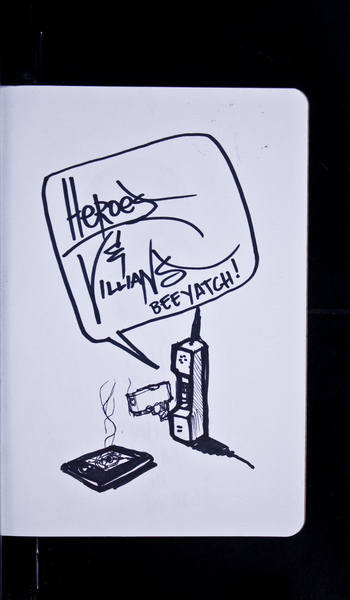 Heroes
&
Villians
BEEYATCH!